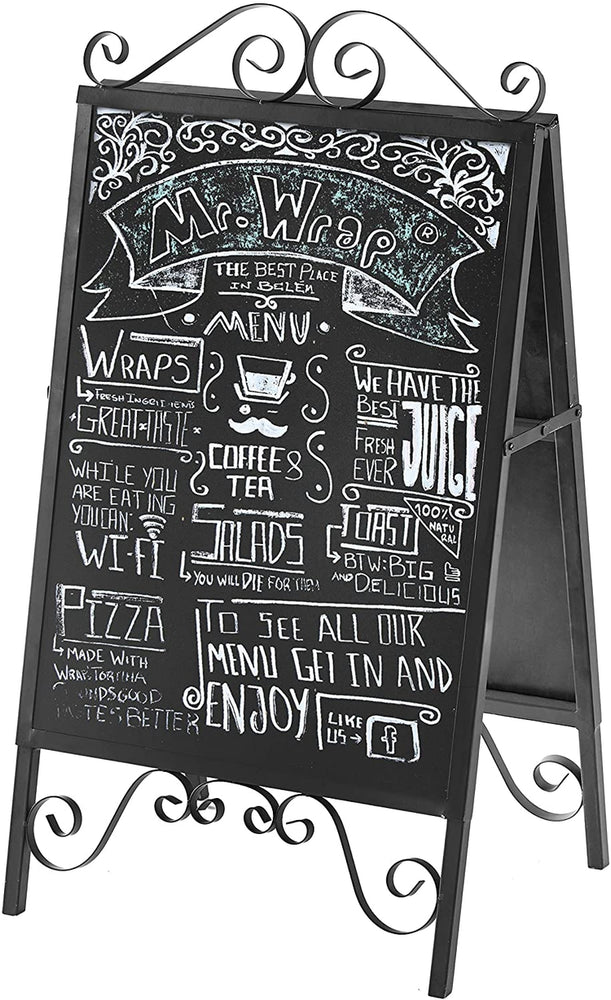 Mr. Wrap ®
THE BEST PLACE
IN BELÉN
MENU
WRAPS
FRESH INGREDIENTS
GREAT TASTE
COFFEE &
TEA
WE HAVE THE
BEST JUICE
FRESH
EVER
WHILE YOU
ARE EATING
YOU CAN:
WI-FI
SALADS
YOU WILL DIE FOR THEM
TOAST
100%
NATU
RAL
BTW: BIG
AND DELICIOUS
PIZZA
MADE WITH
WRAP TORTILLA
SOUNDS GOOD
TASTES BETTER
TO SEE ALL OUR
MENU GET IN AND
ENJOY
LIKE
US → f